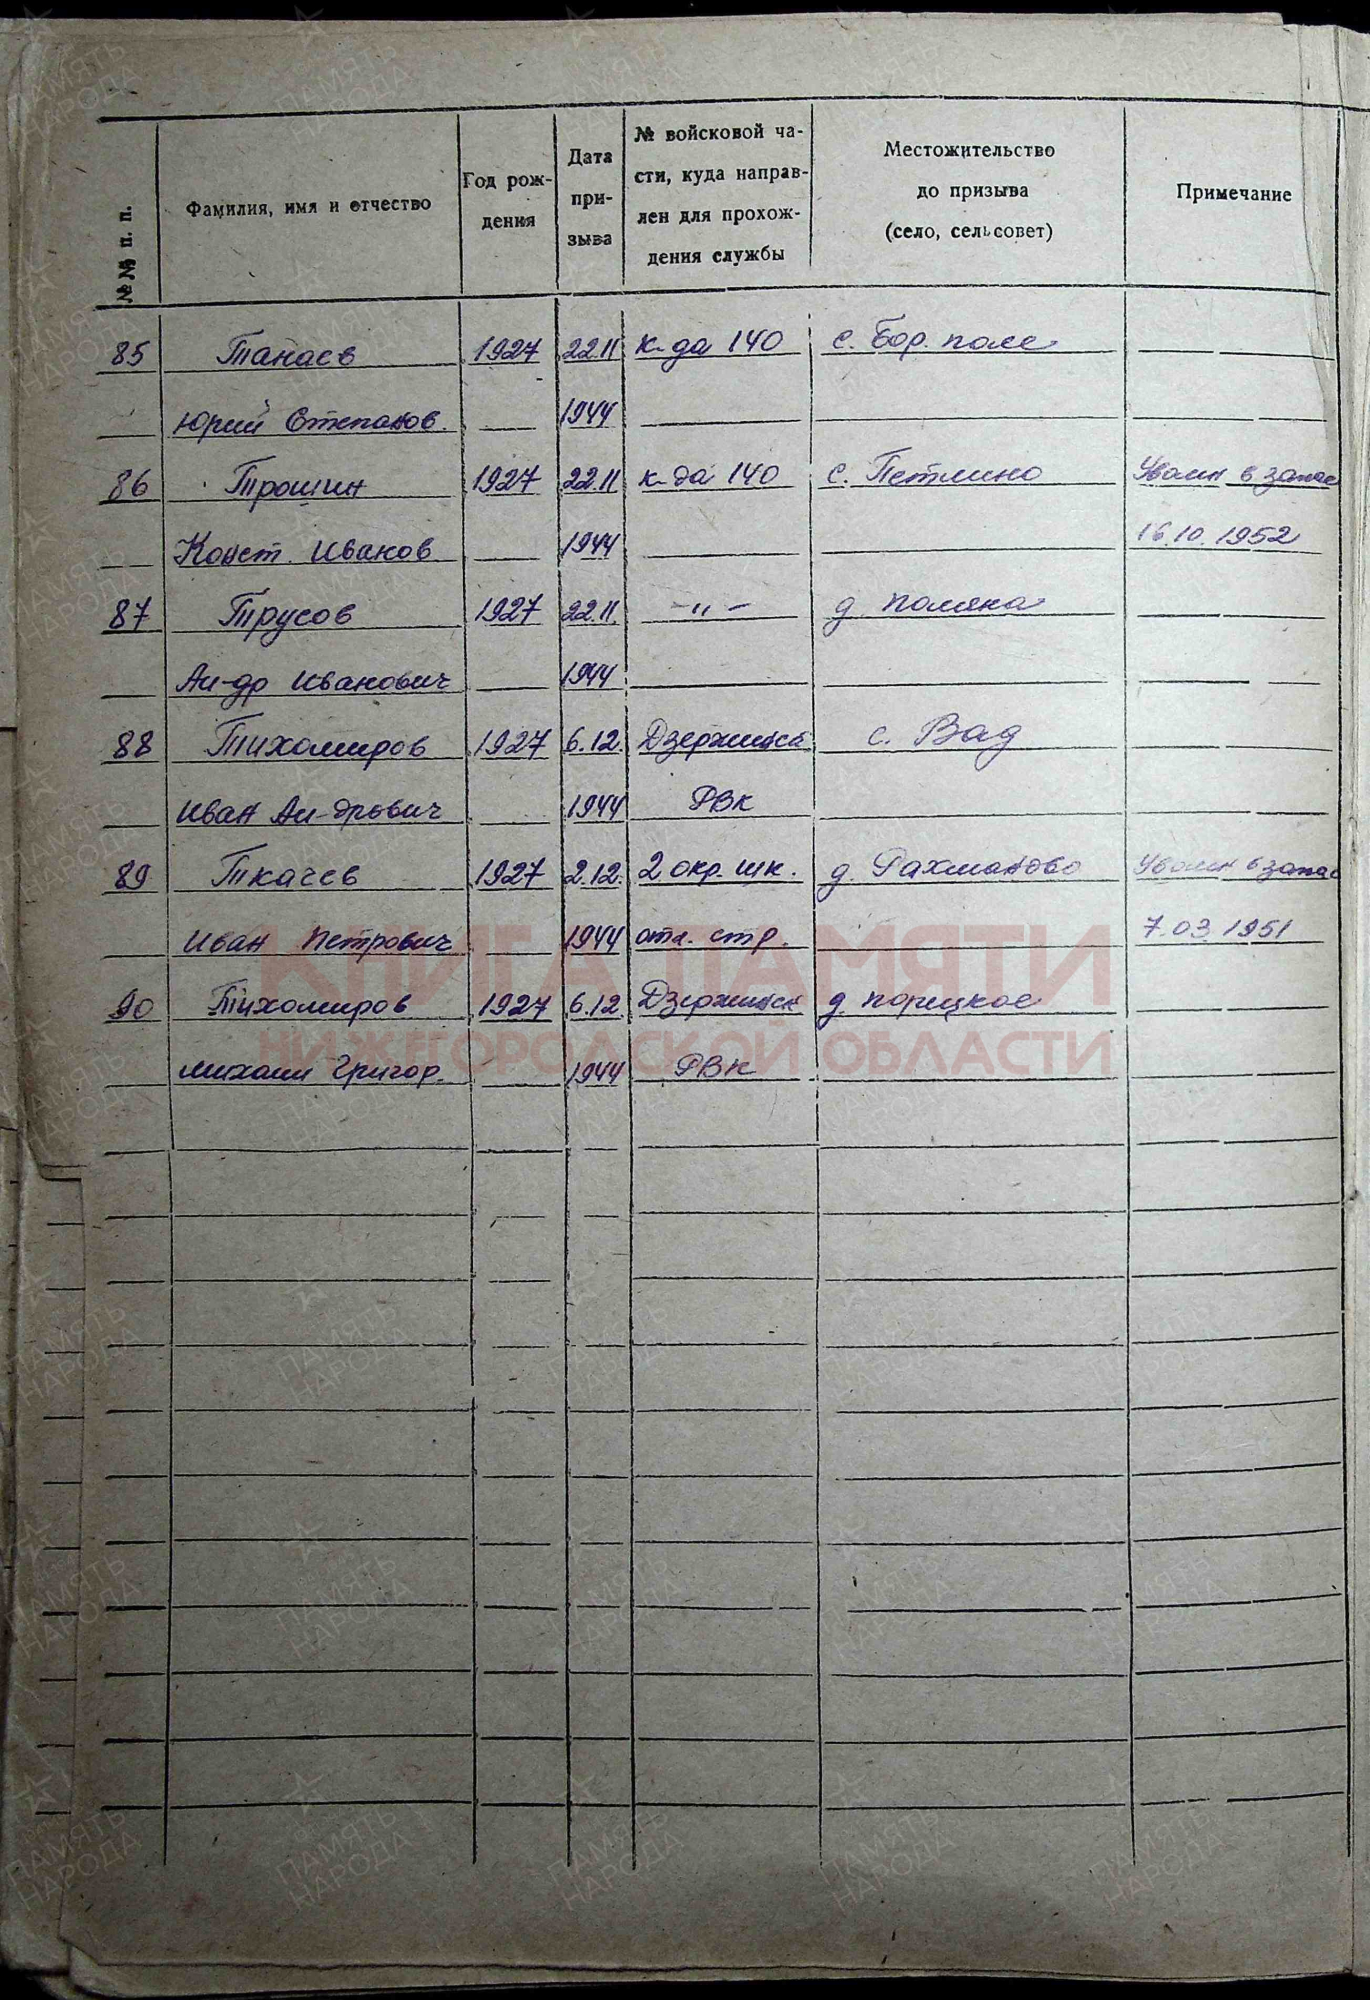 №№ п. п.
Фамилия, имя и отчество
Год рож-
дения
Дата
при-
зыва
№ войсковой ча-
сти, куда направ-
лен для прохож-
дения службы
Местожительство
до призыва
(село, сельсовет)
Примечание
85 Танаев 1927 22.11 к-да 140 с. Бор. поле
Юрий Степанов. 1944
86 Трошин 1927 22.11 к-да 140 с. Петлино Уволен в запас
Конст. Иванов 1944 16.10.1952
87 Трусов 1927 22.11. -"- д. Поляна
Ал-др Иванович 1944
88 Тихомиров 1927 6.12. Дзержинск с. Вад
Иван Ал-дрович 1944 РВК
89 Ткачев 1927 2.12. 2 окр. шк. д. Рахманово Уволен в запас
Иван Петрович 1944 отл. стр. 7.03.1951
90 Тихомиров 1927 6.12. Дзержинск д. Порецкое
Михаил Григор. 1944 РВК
КНИГА ПАМЯТИ
НИЖЕГОРОДСКОЙ ОБЛАСТИ
ПАМЯТЬ
НАРОДА